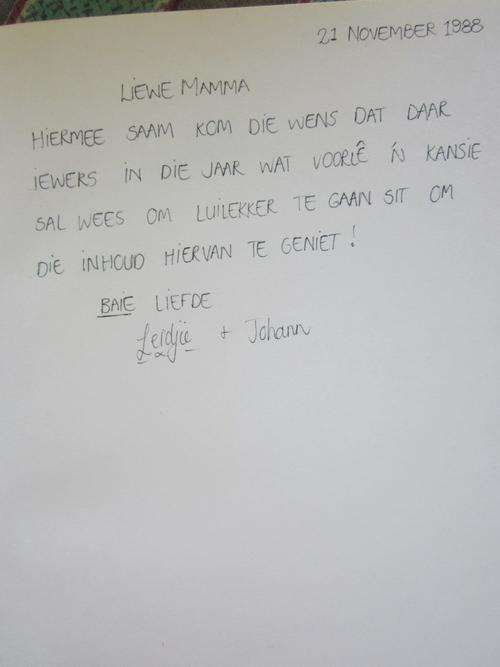 21 NOVEMBER 1988
LIEWE MAMMA
HIERMEE SAAM KOM DIE WENS DAT DAAR
IEWERS IN DIE JAAR WAT VOORLÊ 'N KANSIE
SAL WEES OM LUILEKKER TE GAAN SIT OM
DIE INHOUD HIERVAN TE GENIET!
BAIE LIEFDE
Leidjie + Johann